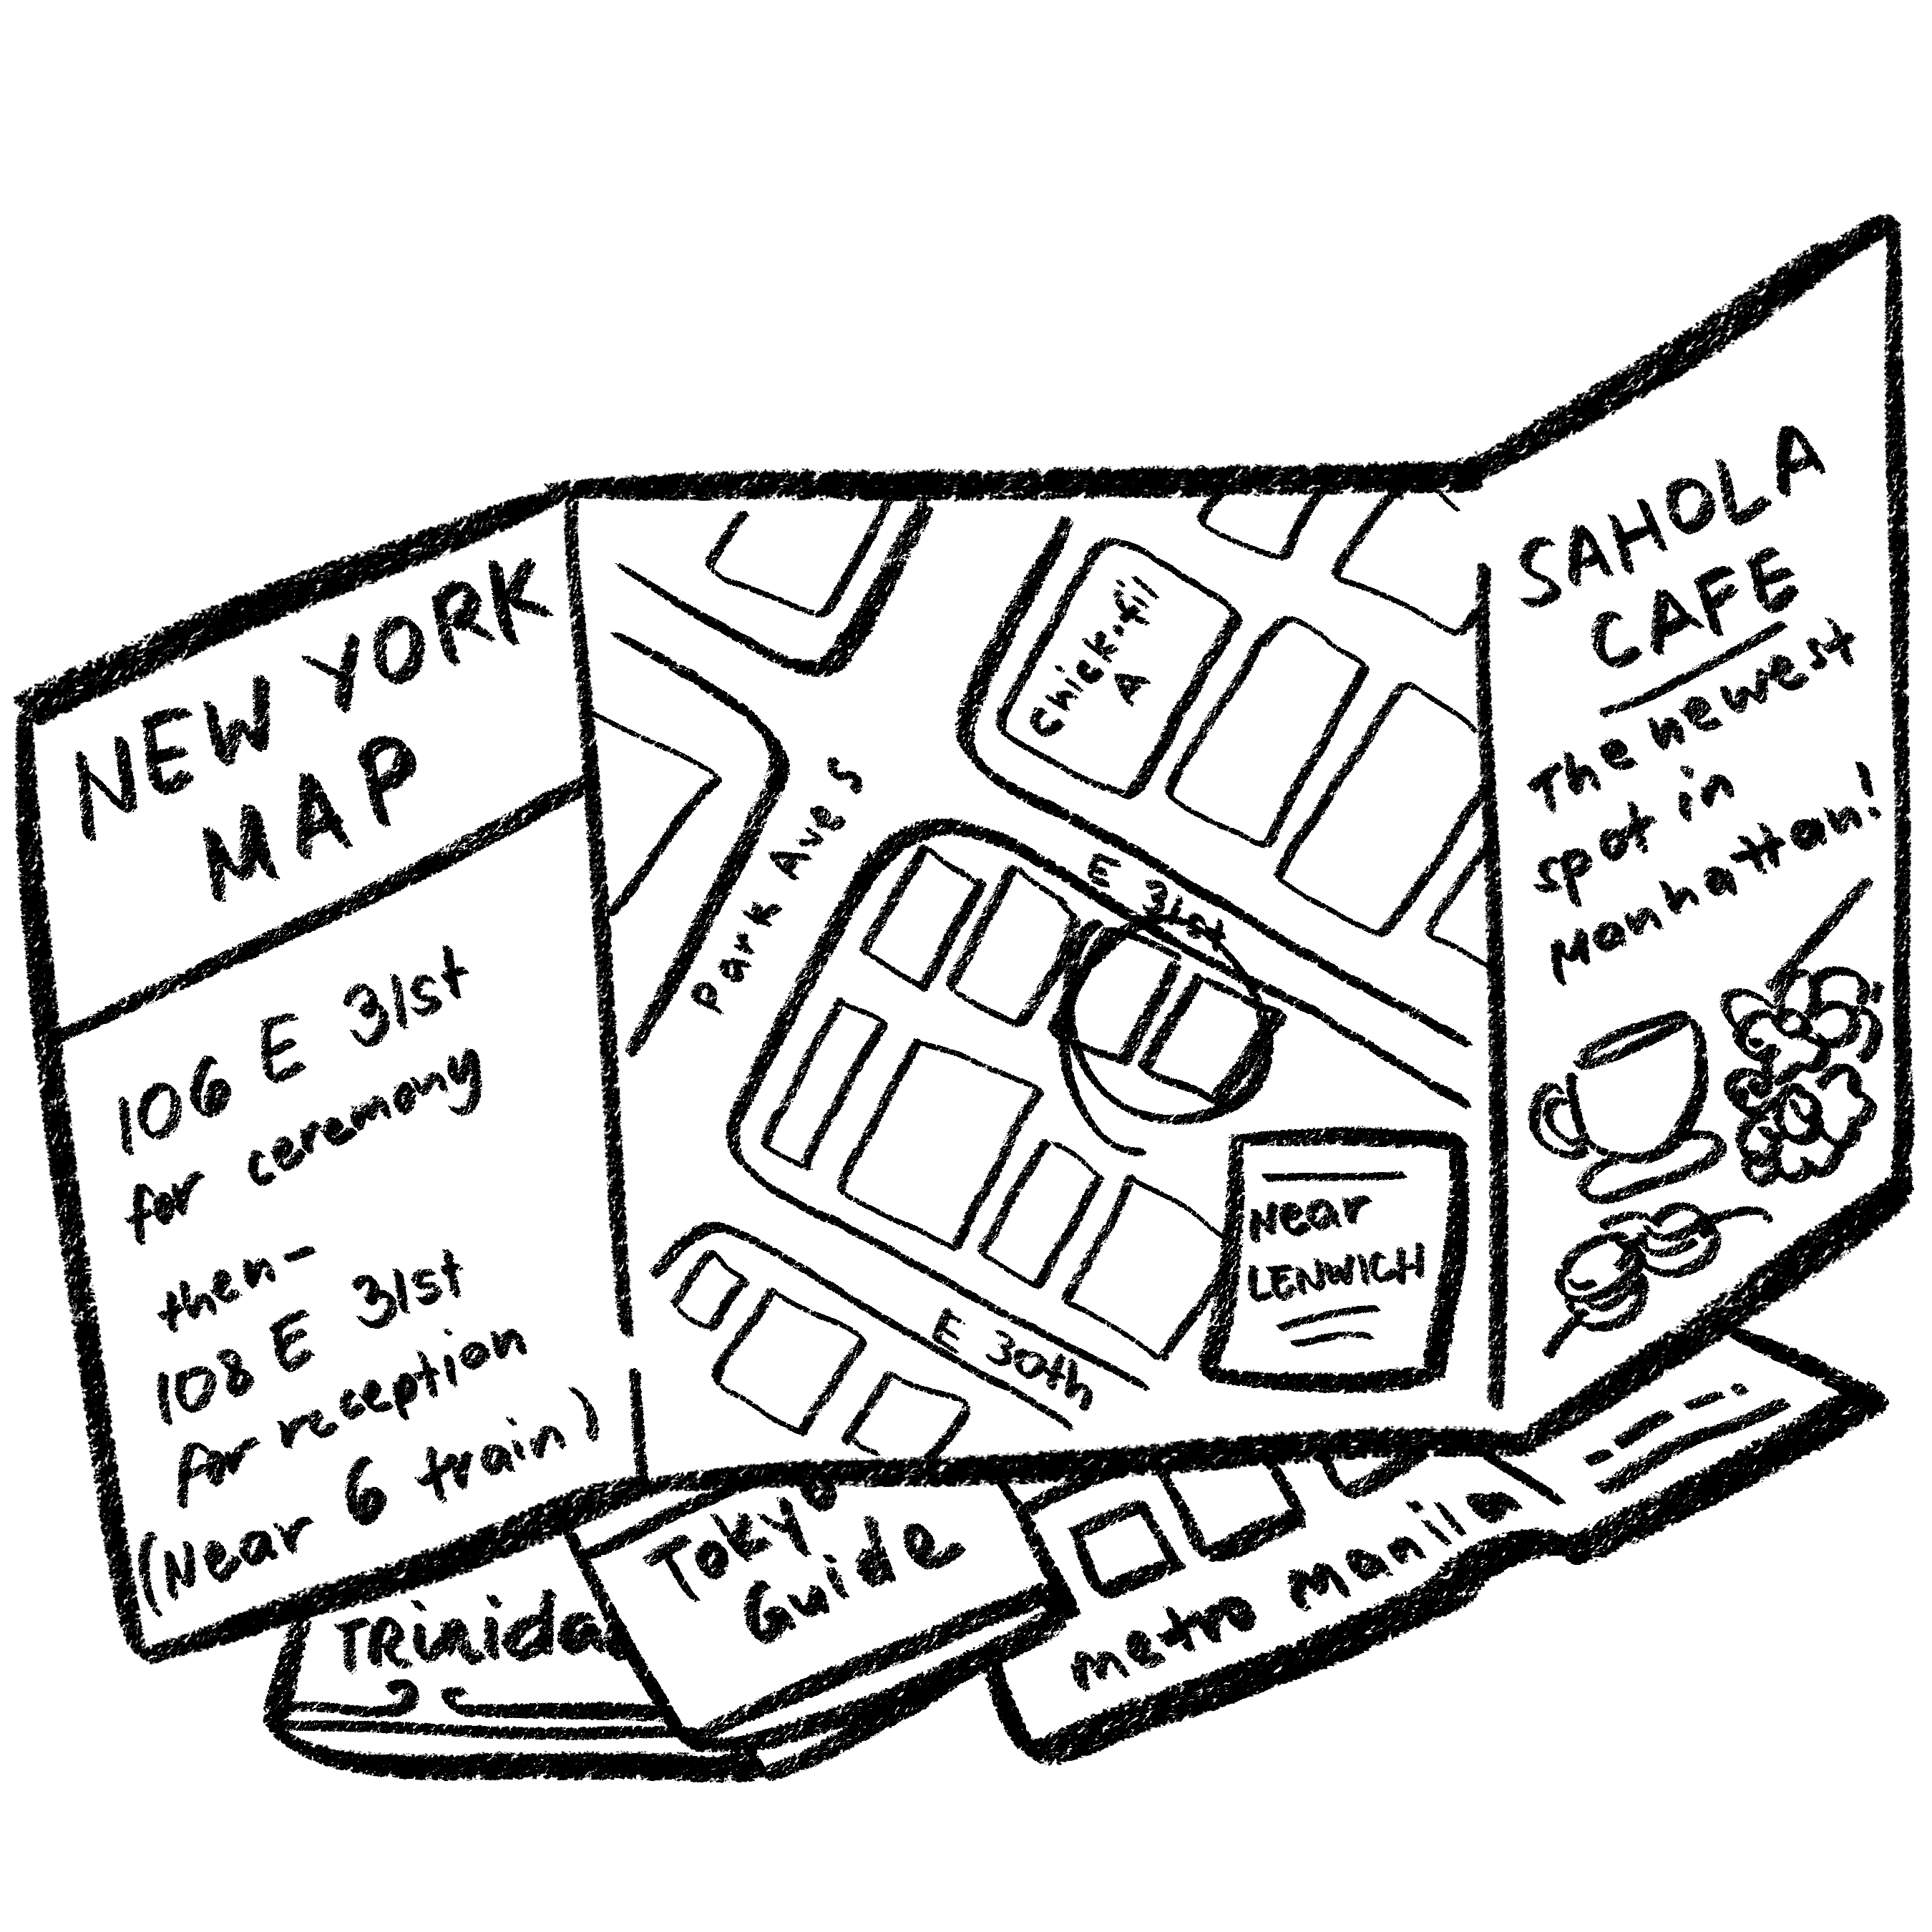 NEW YORK
MAP
106 E 31st
for ceremony
then-
108 E 31st
for reception
(Near 6 train)
Chick-fil
A
Park Ave S
E 31st
E 30th
Near
LENWICH
SAHOLA
CAFE
The newest
spot in
Manhattan!
TRinida
Tokyo
Guide
metro manila